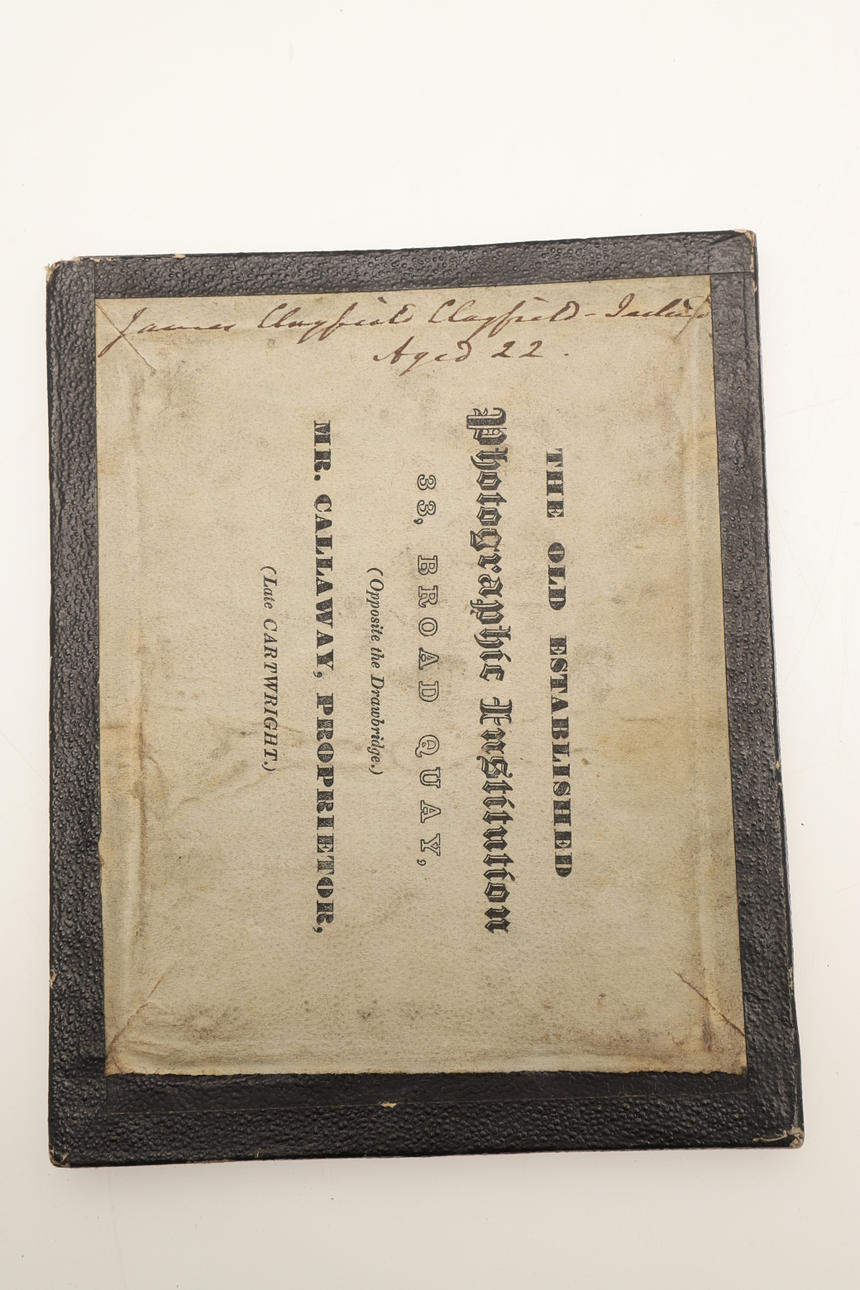 James Clayfield Clayfield-Ireland
Aged 22.
THE OLD ESTABLISHED
Photographic Institution
33, BROAD QUAY,
(Opposite the Drawbridge.)
MR. CALLAWAY, PROPRIETOR,
(Late CARTWRIGHT.)